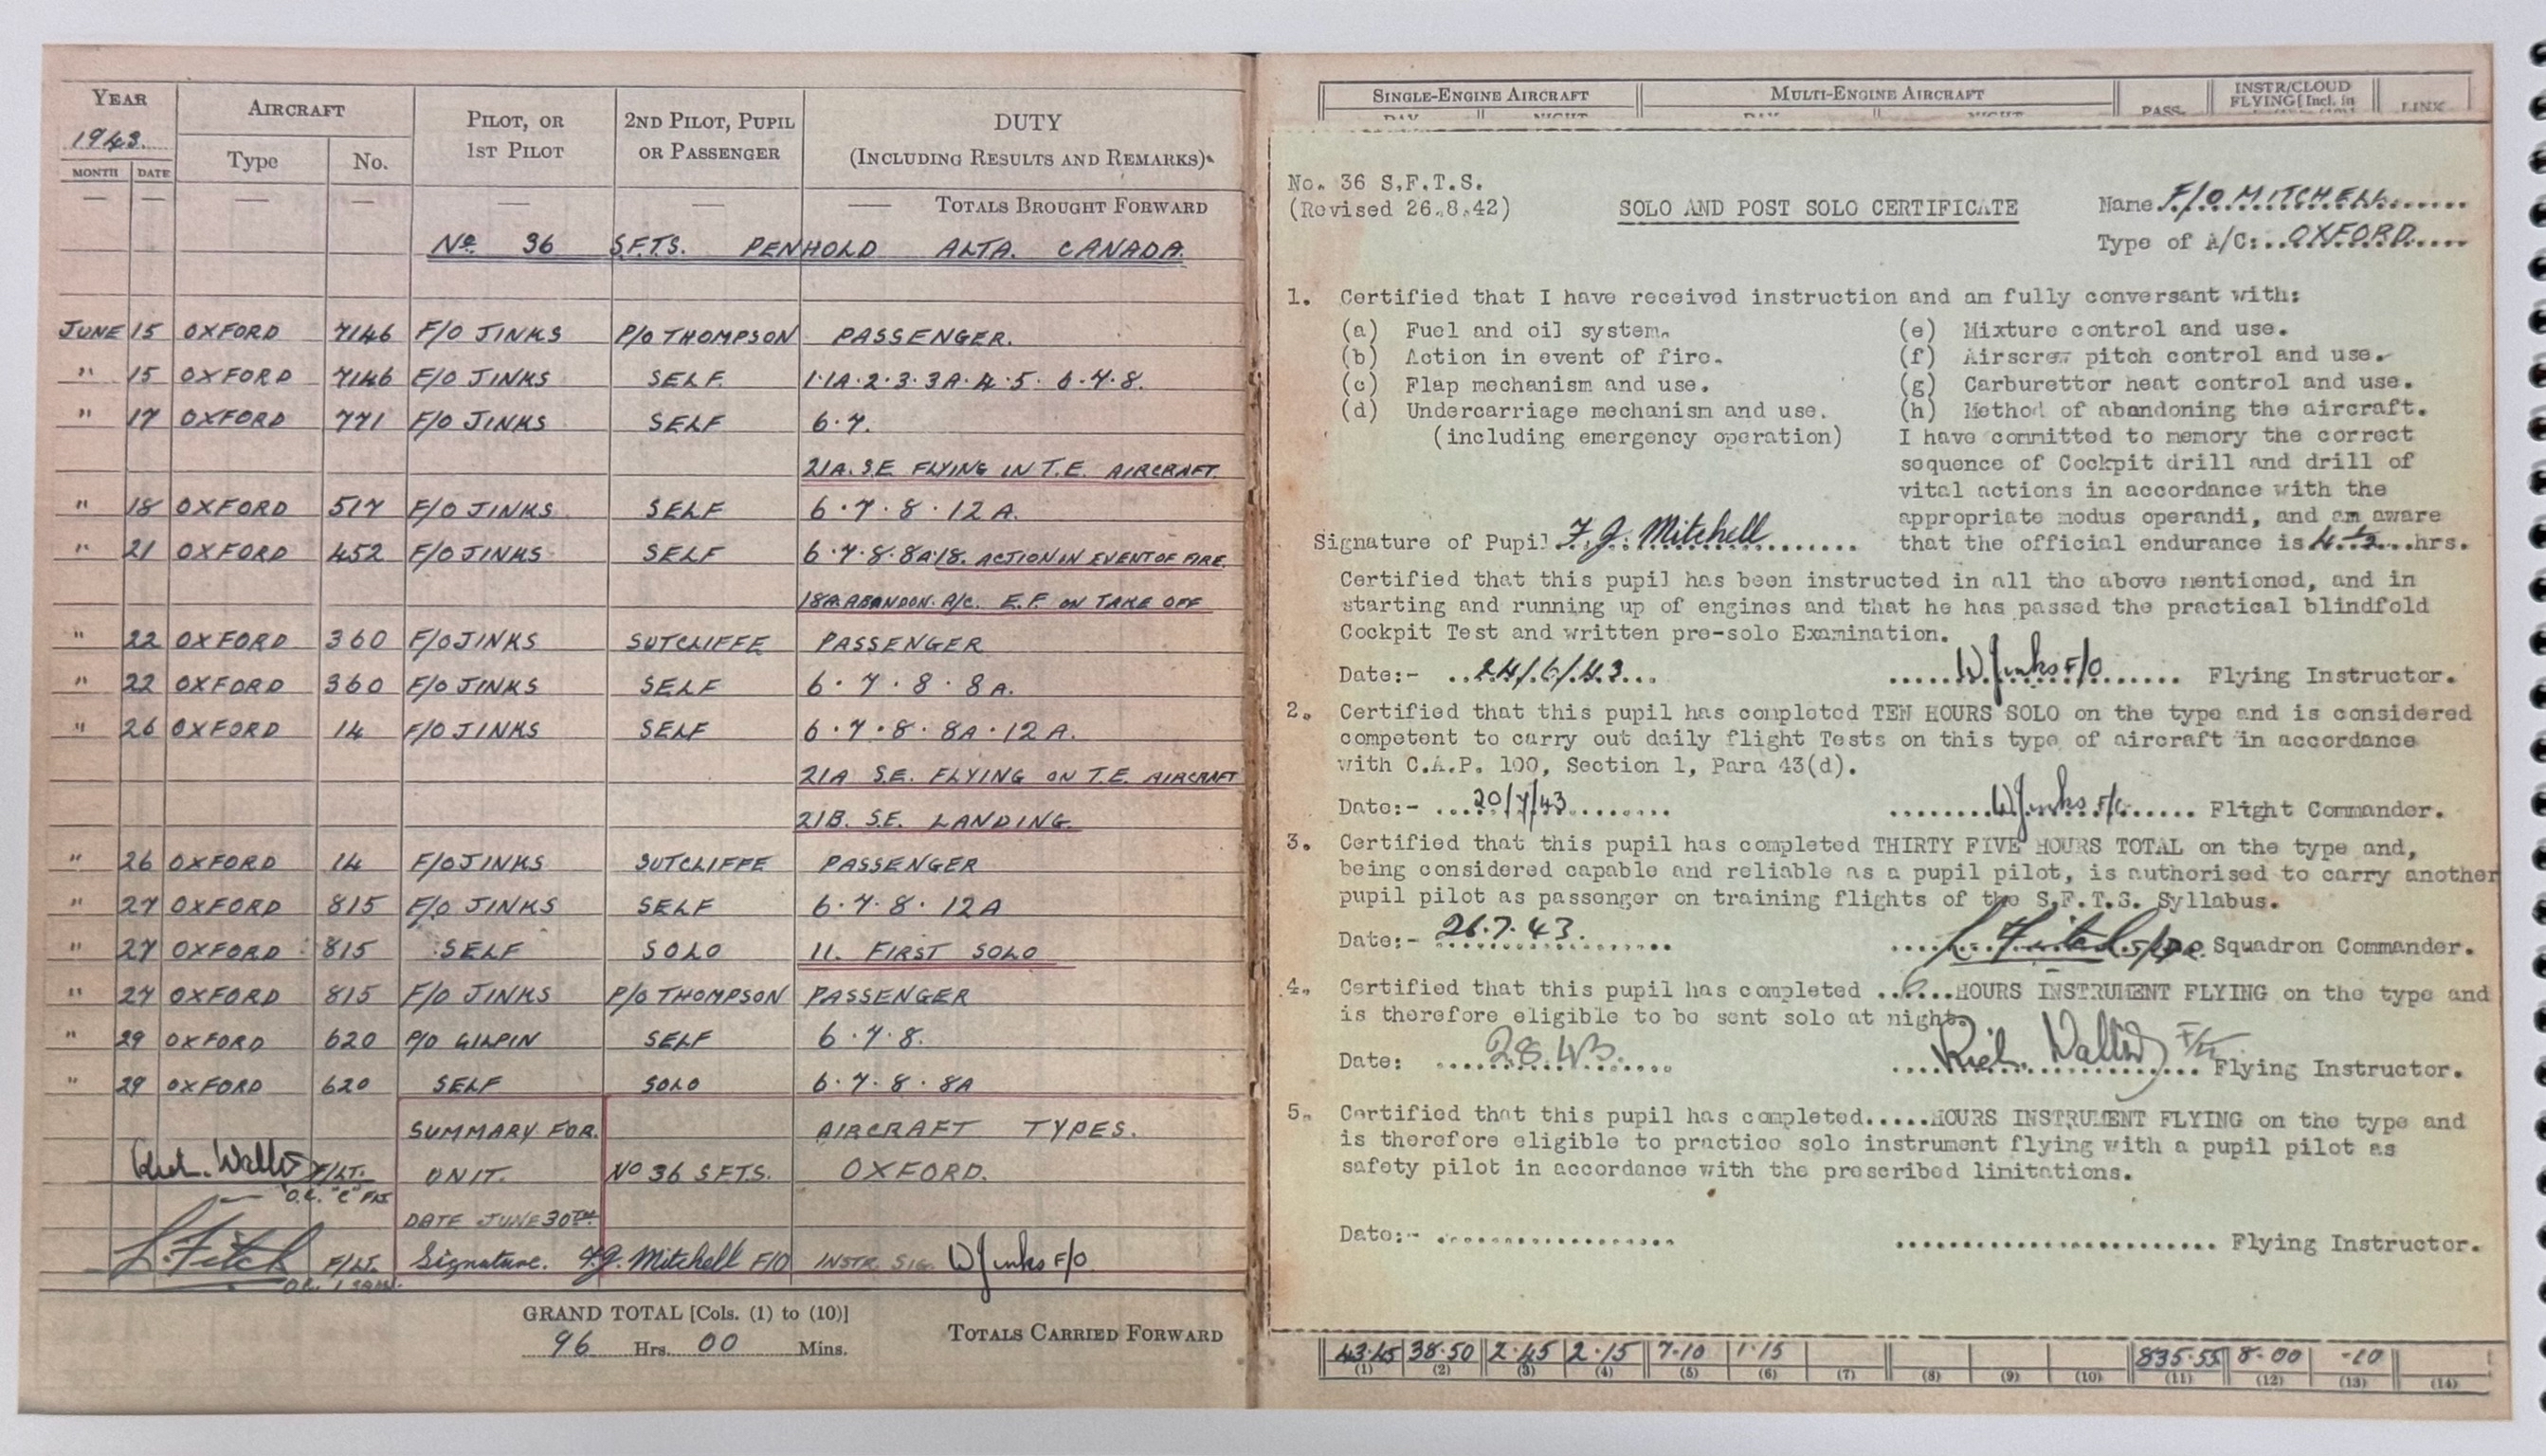 YEAR
1943.
AIRCRAFT
PILOT, OR
1ST PILOT
2ND PILOT, PUPIL
OR PASSENGER
DUTY
(INCLUDING RESULTS AND REMARKS)
MONTH DATE Type No.
— — — — — — — TOTALS BROUGHT FORWARD
No 36 S.F.T.S. PENHOLD ALTA. CANADA.
JUNE 15 OXFORD 7146 F/O JINKS P/O THOMPSON PASSENGER.
" 15 OXFORD 7146 F/O JINKS SELF 1·1A·2·3·3A·4·5·6·7·8.
" 17 OXFORD 771 F/O JINKS SELF 6·7.
21A. S.E. FLYING IN T.E. AIRCRAFT.
" 18 OXFORD 517 F/O JINKS SELF 6·7·8·12A.
" 21 OXFORD 452 F/O JINKS SELF 6·7·8·8A·18. ACTION IN EVENT OF FIRE.
18A. ABANDON. A/C. E.F. ON TAKE OFF
" 22 OXFORD 360 F/O JINKS SUTCLIFFE PASSENGER
" 22 OXFORD 360 F/O JINKS SELF 6·7·8·8A.
" 26 OXFORD 14 F/O JINKS SELF 6·7·8·8A·12A.
21A S.E. FLYING ON T.E. AIRCRAFT
21B. S.E. LANDING.
" 26 OXFORD 14 F/O JINKS SUTCLIFFE PASSENGER
" 27 OXFORD 815 F/O JINKS SELF 6·7·8·12A
" 27 OXFORD 815 SELF SOLO 11. FIRST SOLO
" 27 OXFORD 815 F/O JINKS P/O THOMPSON PASSENGER
" 29 OXFORD 620 P/O GILPIN SELF 6·7·8.
" 29 OXFORD 620 SELF SOLO 6·7·8·8A
SUMMARY FOR. AIRCRAFT TYPES.
F/LT. UNIT. No 36 S.F.T.S. OXFORD.
O.C. "C" FLT
DATE JUNE 30TH
L. Fitch F/LT. Signature. F.J. Mitchell F/O INSTR. SIG. W Jinks F/O
O.C. 1 SQDN.
GRAND TOTAL [Cols. (1) to (10)]
96 Hrs. 00 Mins.
TOTALS CARRIED FORWARD
SINGLE-ENGINE AIRCRAFT MULTI-ENGINE AIRCRAFT PASS. INSTR/CLOUD
FLYING [Incl. in LINK
DAY NIGHT DAY NIGHT
No. 36 S.F.T.S.
(Revised 26.8.42)
SOLO AND POST SOLO CERTIFICATE
Name F/O MITCHELL
Type of A/C: OXFORD
1. Certified that I have received instruction and am fully conversant with:
(a) Fuel and oil system.
(b) Action in event of fire.
(c) Flap mechanism and use.
(d) Undercarriage mechanism and use.
(including emergency operation)
(e) Mixture control and use.
(f) Airscrew pitch control and use.
(g) Carburettor heat control and use.
(h) Method of abandoning the aircraft.
I have committed to memory the correct
sequence of Cockpit drill and drill of
vital actions in accordance with the
appropriate modus operandi, and am aware
that the official endurance is 4½ hrs.
Signature of Pupil F.J. Mitchell
Certified that this pupil has been instructed in all the above mentioned, and in
starting and running up of engines and that he has passed the practical blindfold
Cockpit Test and written pre-solo Examination.
Date:- 24/6/43 W Jinks F/O Flying Instructor.
2. Certified that this pupil has completed TEN HOURS SOLO on the type and is considered
competent to carry out daily flight Tests on this type of aircraft in accordance
with C.A.P. 100, Section 1, Para 43(d).
Date:- 20/7/43 W Jinks F/O Flight Commander.
3. Certified that this pupil has completed THIRTY FIVE HOURS TOTAL on the type and,
being considered capable and reliable as a pupil pilot, is authorised to carry another
pupil pilot as passenger on training flights of the S.F.T.S. Syllabus.
Date:- 26.7.43. L. Fitch Squadron Commander.
4. Certified that this pupil has completed HOURS INSTRUMENT FLYING on the type and
is therefore eligible to be sent solo at night.
Date: 2.8.43. Flying Instructor.
5. Certified that this pupil has completed.....HOURS INSTRUMENT FLYING on the type and
is therefore eligible to practice solo instrument flying with a pupil pilot as
safety pilot in accordance with the prescribed limitations.
Date:- Flying Instructor.
43·45 38·50 2·45 2·15 7·10 1·15 835·55 8·00 -10
(1) (2) (3) (4) (5) (6) (7) (8) (9) (10) (11) (12) (13) (14)